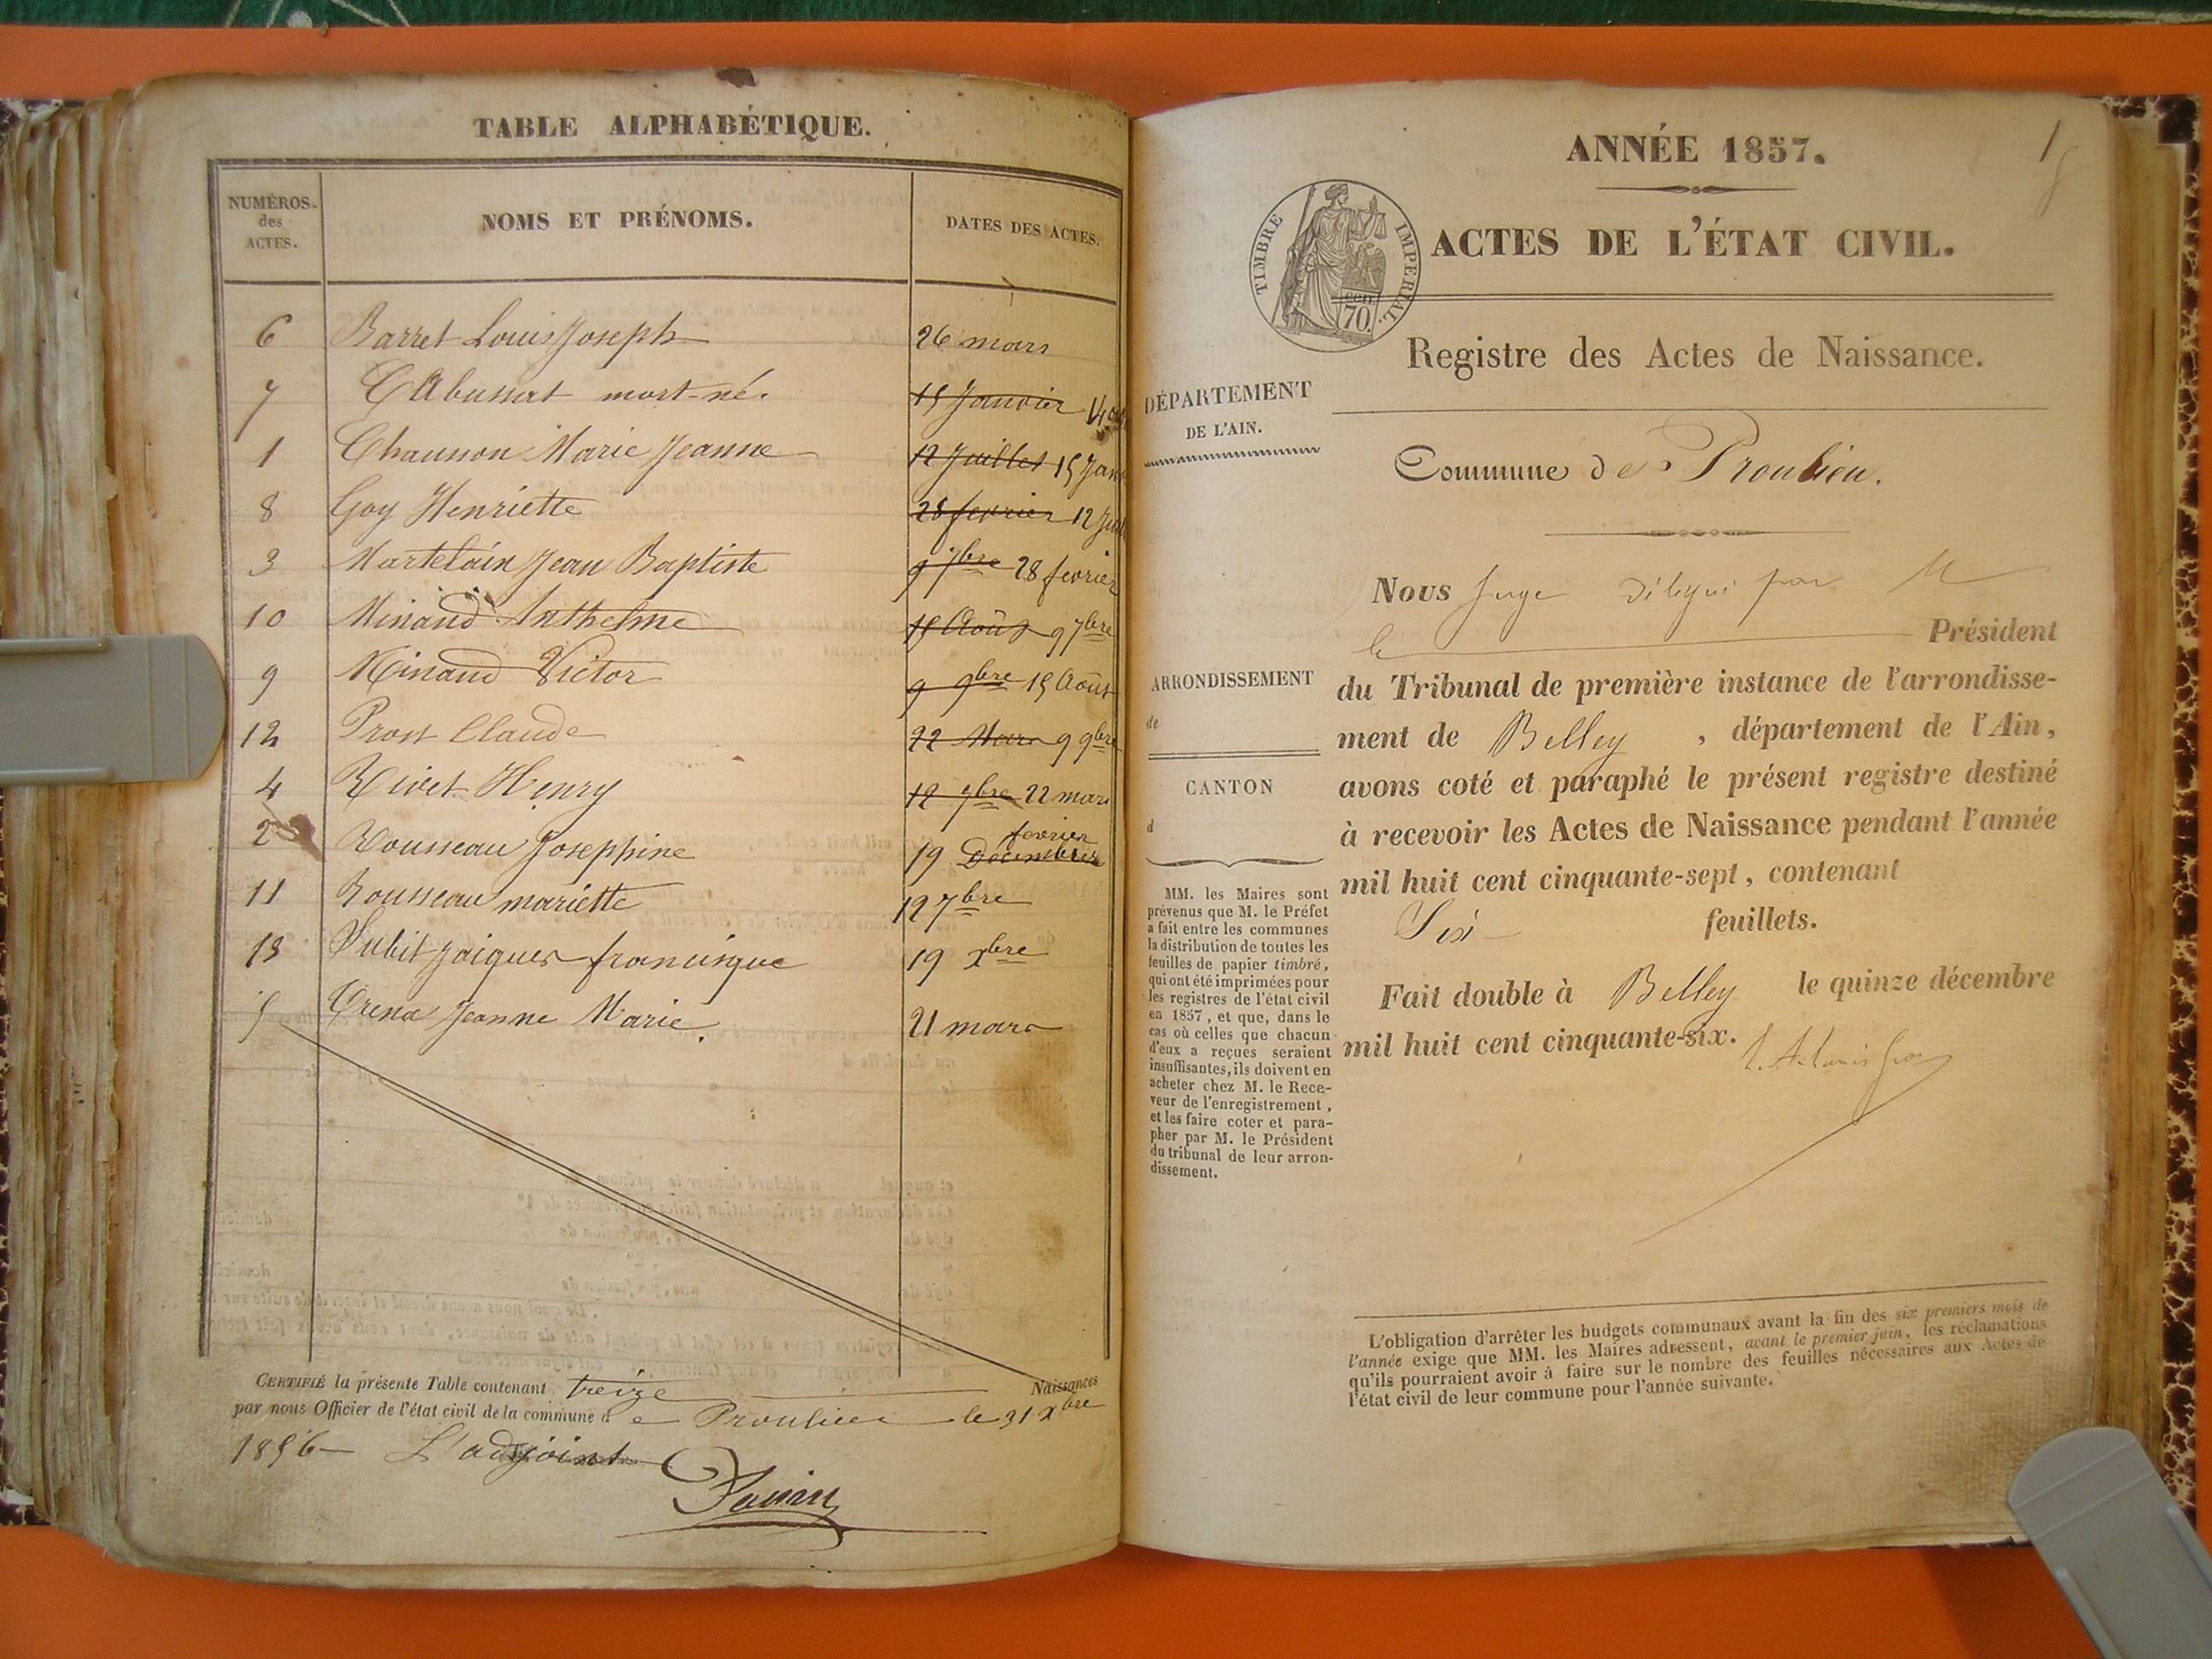 TABLE ALPHABÉTIQUE.
NUMÉROS. des ACTES.
NOMS ET PRÉNOMS.
DATES DES ACTES.
6 Barret Louis Joseph 26 mars
7 mort-né. 15 Janvier 14
1 Chausson Marie Jeanne 12 Juillet 15 Jan
8 Goy Henriette 28 fevrier 12
3 Martelain Jean Baptiste 9 7bre 28 fevrier
10 Minand Anthelme 15 Août 9 7bre
9 Minand Victor 9 9bre 15 Août
12 Prost Claude 22 Mars 9 9bre
4 Rivet Henry 12 7bre 22 mars
2 Rousseau Josephine 19 Décembre fevrier
11 Rousseau mariette 12 7bre
13 Subit Jaiques francisque 19 Xbre
5 Jeanne Marie. 21 mars
CERTIFIÉ la présente Table contenant treize Naissances
par nous Officier de l'état civil de la commune de Proulieu le 31 Xbre
1856 L'adjoint
ANNÉE 1857.
1
TIMBRE IMPERIAL.
cen. 70.
ACTES DE L'ÉTAT CIVIL.
Registre des Actes de Naissance.
DÉPARTEMENT
DE L'AIN.
Commune de Proulieu.
Nous Juge délégué par M
le Président
ARRONDISSEMENT
de
du Tribunal de première instance de l'arrondisse-
ment de Belley , département de l'Ain,
CANTON
d
avons coté et paraphé le présent registre destiné
à recevoir les Actes de Naissance pendant l'année
mil huit cent cinquante-sept, contenant
Six feuillets.
Fait double à Belley le quinze décembre
mil huit cent cinquante-six.
MM. les Maires sont
prévenus que M. le Préfet
a fait entre les communes
la distribution de toutes les
feuilles de papier timbré,
qui ont été imprimées pour
les registres de l'état civil
en 1857, et que, dans le
cas où celles que chacun
d'eux a reçues seraient
insuffisantes, ils doivent en
acheter chez M. le Rece-
veur de l'enregistrement,
et les faire coter et para-
pher par M. le Président
du tribunal de leur arron-
dissement.
L'obligation d'arrêter les budgets communaux avant la fin des six premiers mois de
l'année exige que MM. les Maires adressent, avant le premier juin, les réclamations
qu'ils pourraient avoir à faire sur le nombre des feuilles nécessaires aux Actes de
l'état civil de leur commune pour l'année suivante.